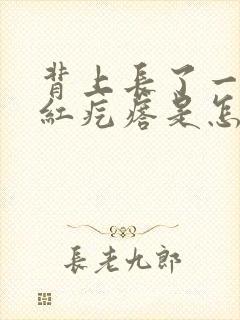 背上長了一
紅疙瘩是怎
長老九郎